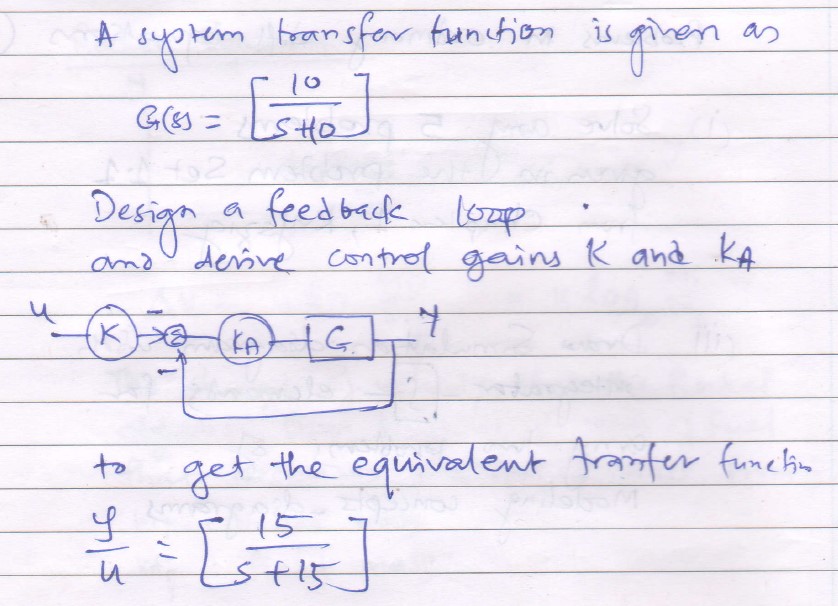 A system transfer function is given as
G(s) = [10/(s+10)]
Design a feedback loop .
and derive control gains K and KA
u K - Σ KA G y
-
to get the equivalent tranfer function
y/u = [15/(s+15)]